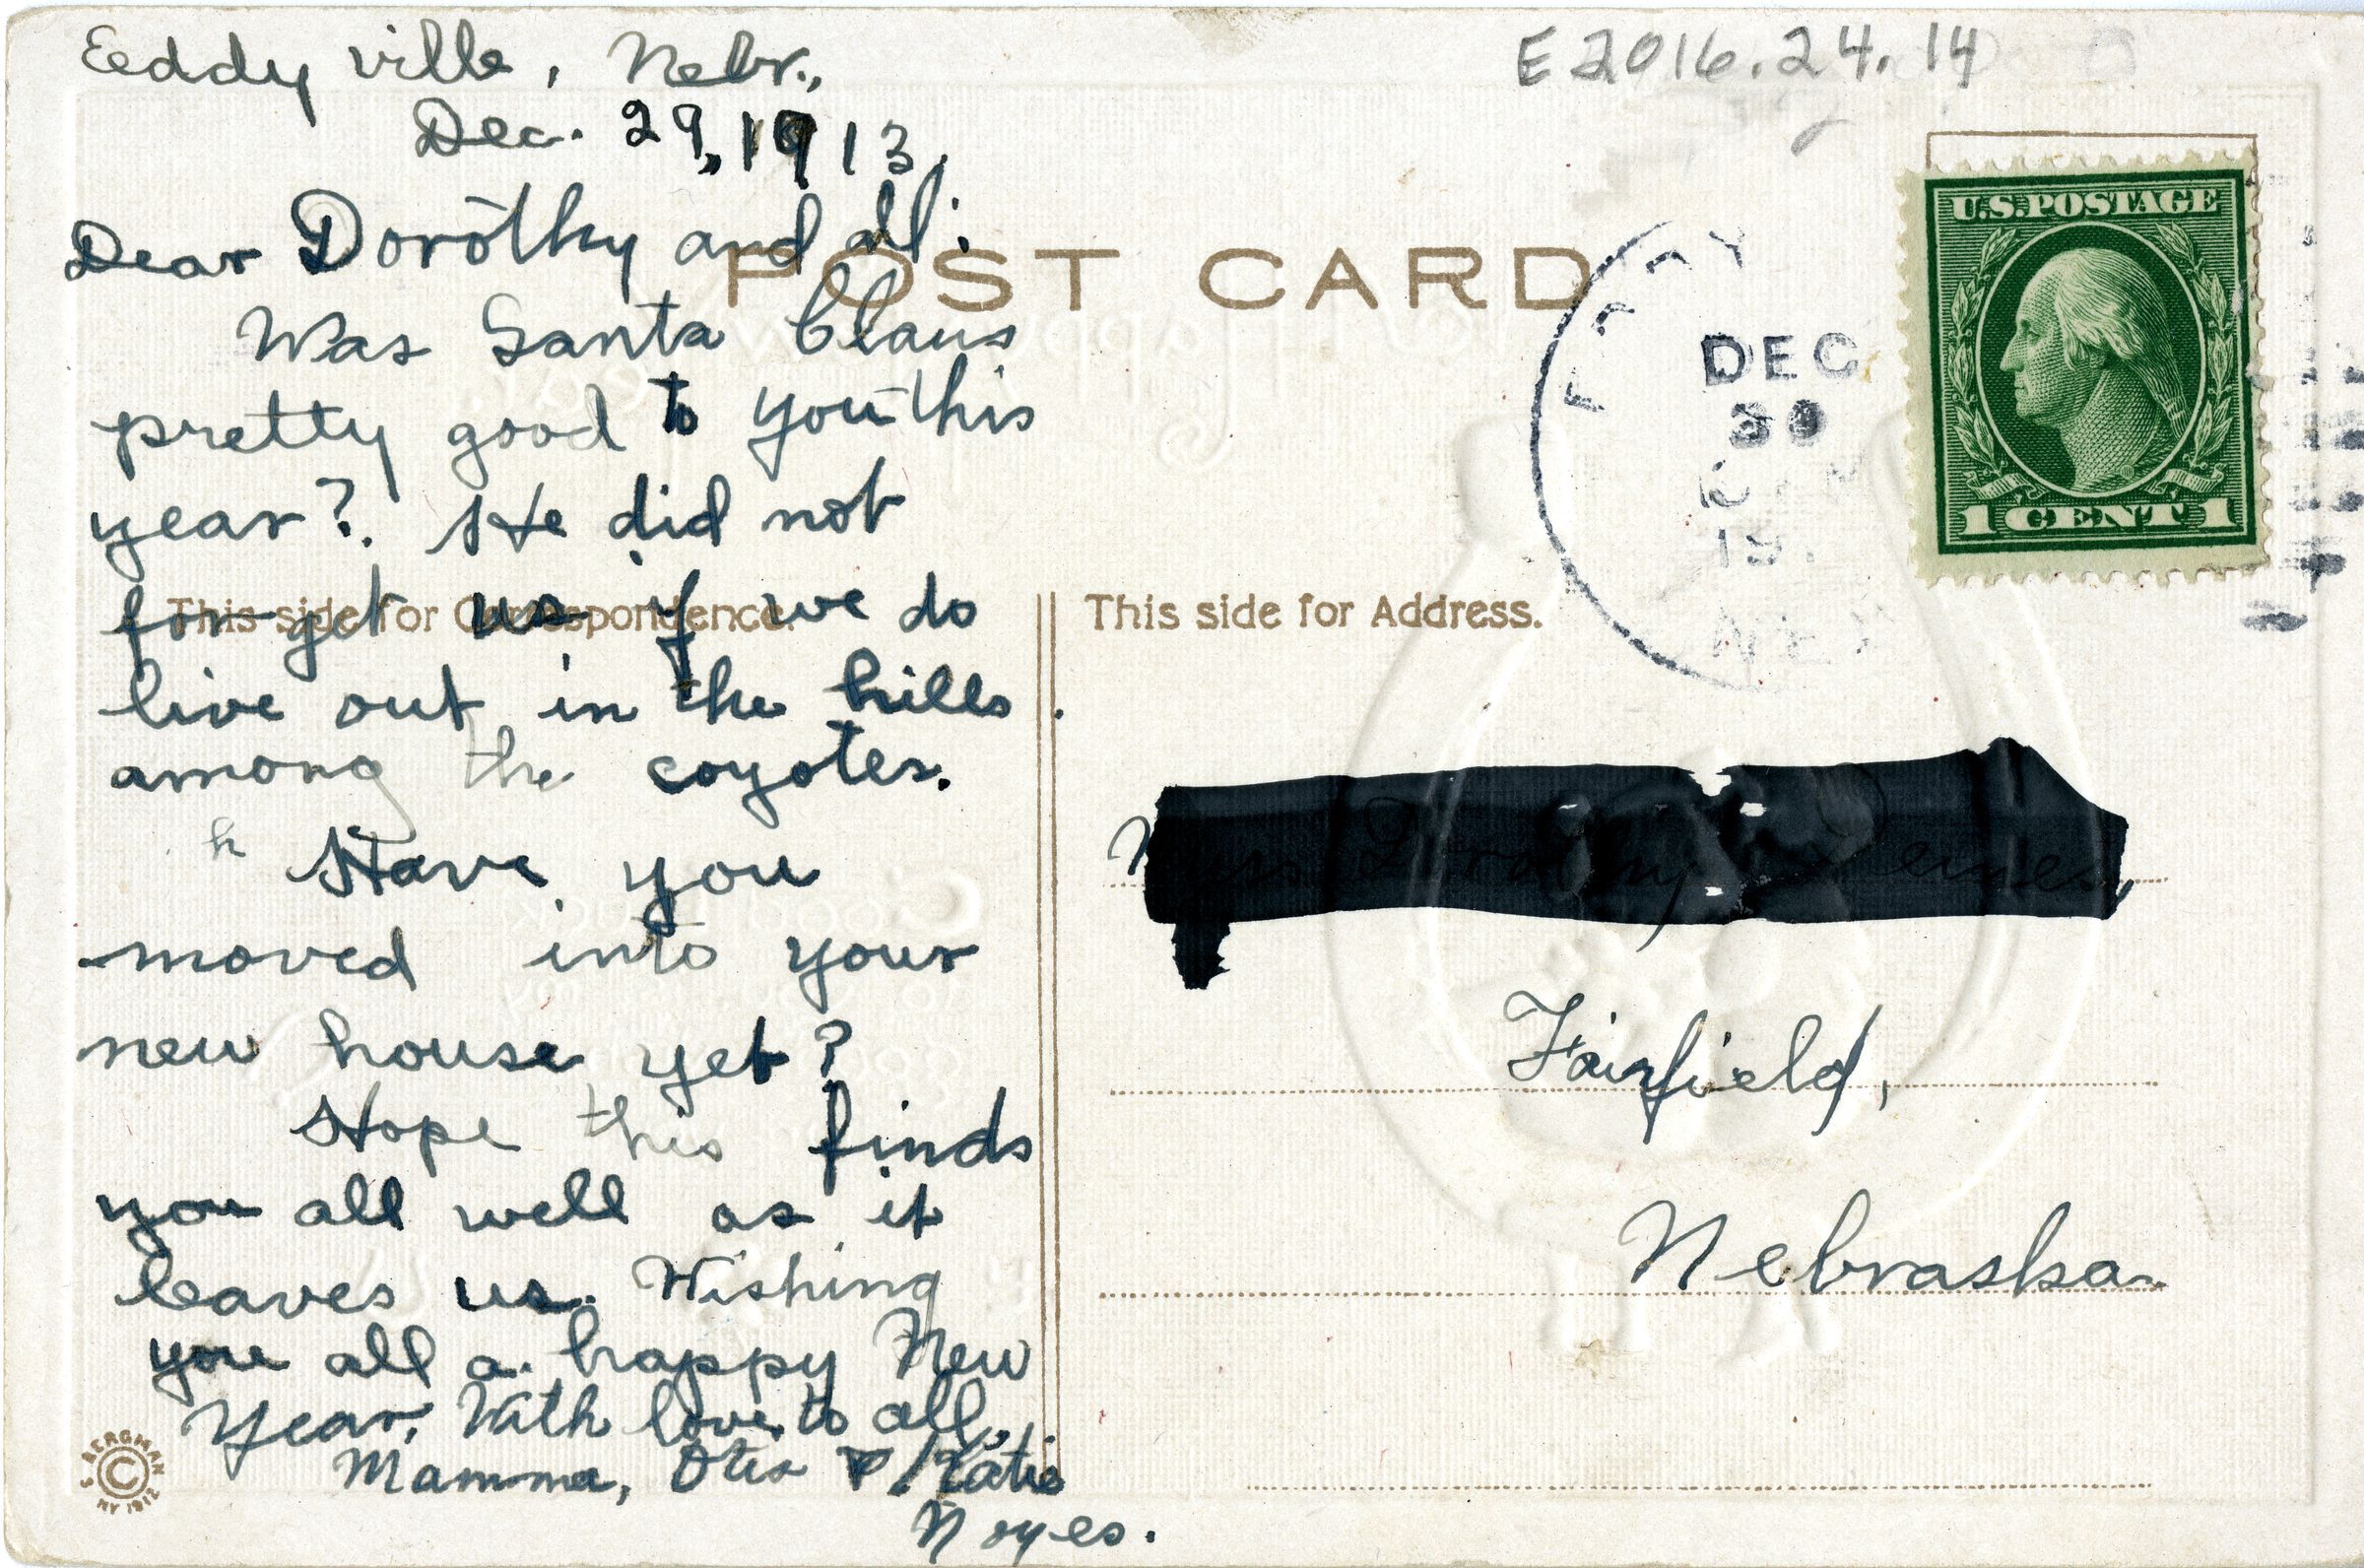 Eeddyville, Nebr.,
Dec. 29, 1913.
Dear Dorothy and all:
Was Santa Claus
pretty good to you this
year? He did not
forget us if we do
live out in the hills
among the coyotes.
h Have you
moved into your
new house yet?
Hope this finds
you all well as it
leaves us. Wishing
you all a happy New
Year, With love to all,
Mamma, Otis & Katie
Noyes.
E2016.24.14
POST CARD
This side for Correspondence.
This side for Address.
U.S. POSTAGE
1 CENT 1
DEC
30
19
Miss Dorothy
Fairfield,
Nebraska.
© S. BERGMAN NY 1912